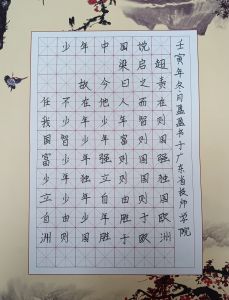 少年中国说
梁启超
故今日之责
任不在他人而在
我少年少年智则
国智少年富则国
富少年强则国强
少年独立则国独
立少年自由则国
自由少年胜于欧
洲则国胜于欧洲
壬寅年冬月书于广东省技师学院